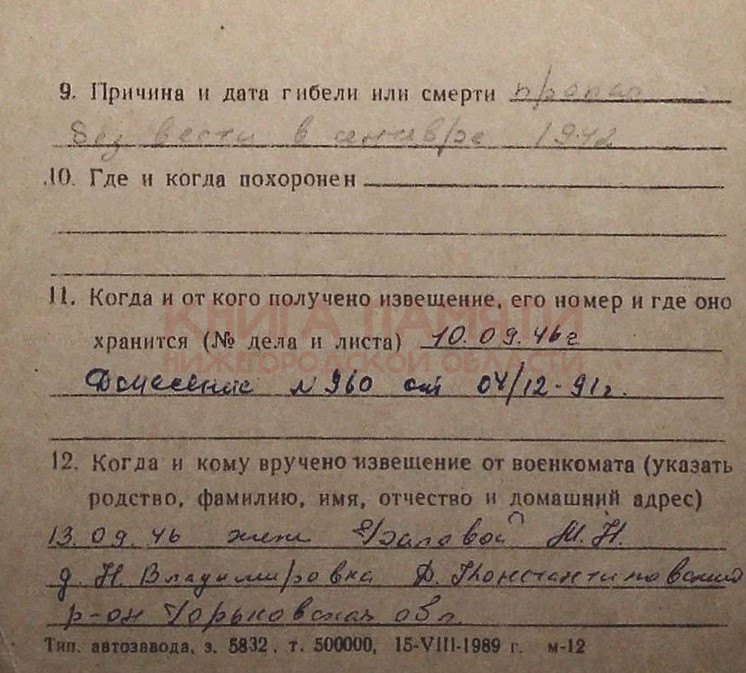 9. Причина и дата гибели или смерти пропал
без вести в 1942
10. Где и когда похоронен
11. Когда и от кого получено извещение, его номер и где оно
КНИГА ПАМЯТИ
хранится (№ дела и листа) 10.09.46г
НИЖЕГОРОДСКОЙ ОБЛАСТИ
Донесение №960 от 04/12-91г.
12. Когда и кому вручено извещение от военкомата (указать
родство, фамилию, имя, отчество и домашний адрес)
13.09.46 жене М.Н.
д. Н Владимировка Д. Константиновский
р-он Горьковская обл.
Тип. автозавода, з. 5832, т. 500000, 15-VIII-1989 г. м-12